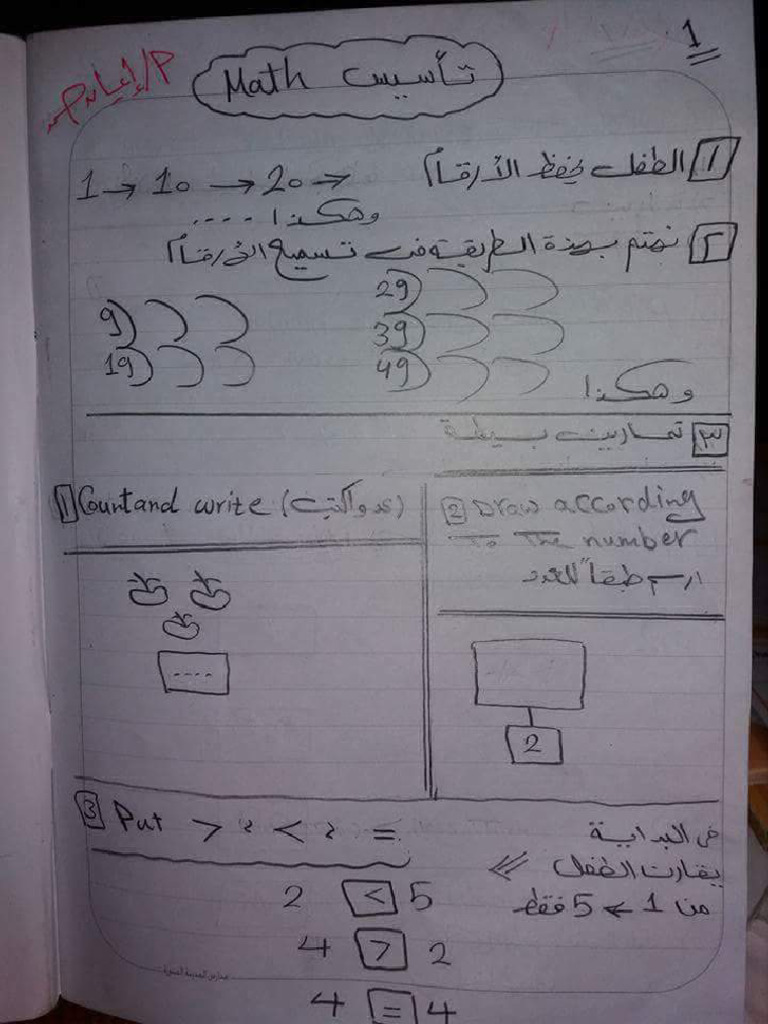 1
تأسيس Math
1 الطفل يحفظ الأرقام
1 → 10 → 20 →
وهكذا ....
٢ نهتم بهذة الطريقة فى تسميع الأرقام
9 29
19 39
49
وهكذا
٣ تمارين بسيطة
1 Count and write (عد واكتب)
2 Draw according
To The number
ارسم طبقاً للعدد
....
2
3 Put > , < , =
فى البداية
يقارن الطفل
من 1 ← 5 فقط
2 < 5
4 > 2
4 = 4